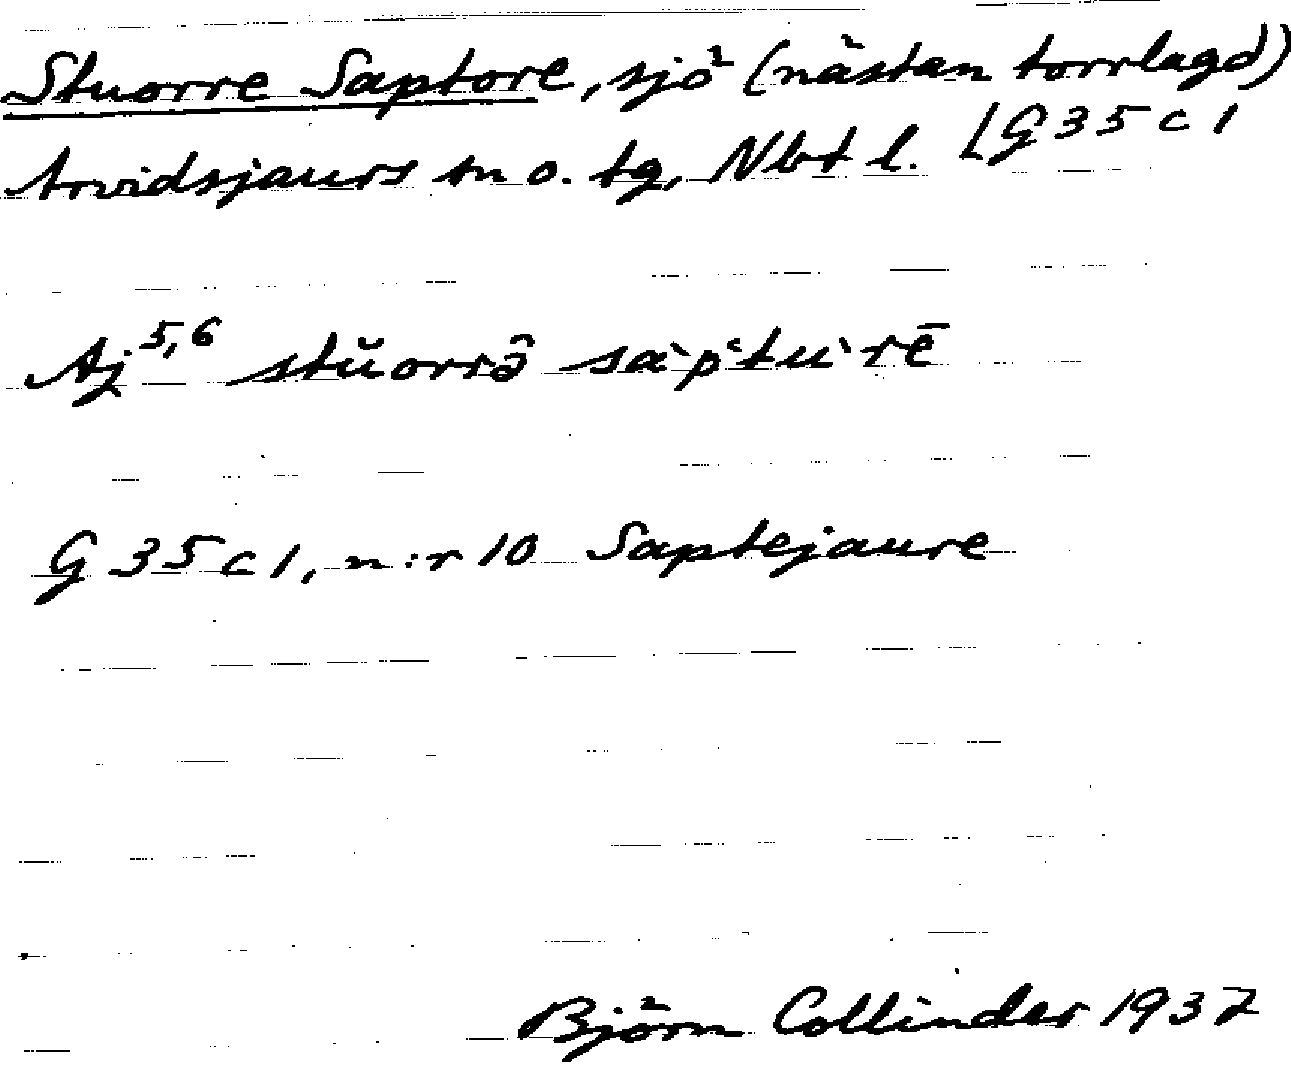 Stuorre Saptore, sjö (nästan torrlagd)
Arvidsjaurs sn o. tg, Nbt l. [G 35 c 1
Aj 5,6 stŭorrə̑ sàpʻtùˋrē
G 35 c 1, n:r 10 Saptejaure
Björn Collinder 1937